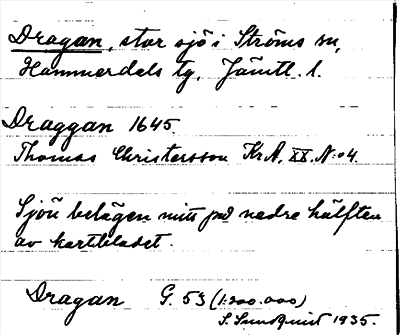 Dragan, stor sjö i Ströms sn,
Hammerdals tg, Jämtl. l.
Draggan 1645.
Thomas Christersson Kr.A. XX. N:o 4.
Sjön belägen mitt på nedre hälften
av kartbladet.
Dragan G. 53 (1:200.000)
S. Sundquist 1935.